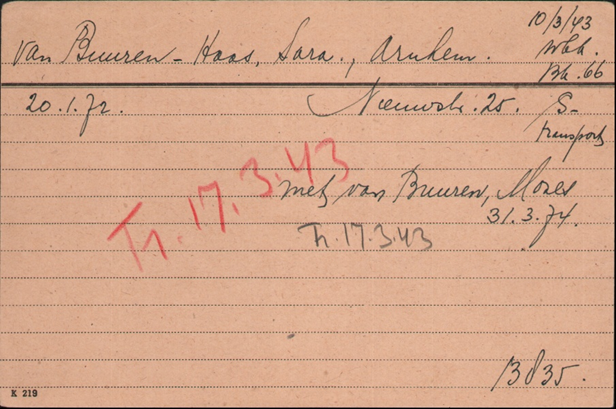 10/3/43
van Buuren-Haas, Sara., Arnhem. Wbk.
Bk. 66
20.1.72. Nieuwstr. 25. S-
transport
Tr. 17.3.43
met van Buuren, Mozes
31.3.74.
Tr. 17.3.43
13835.
K 219